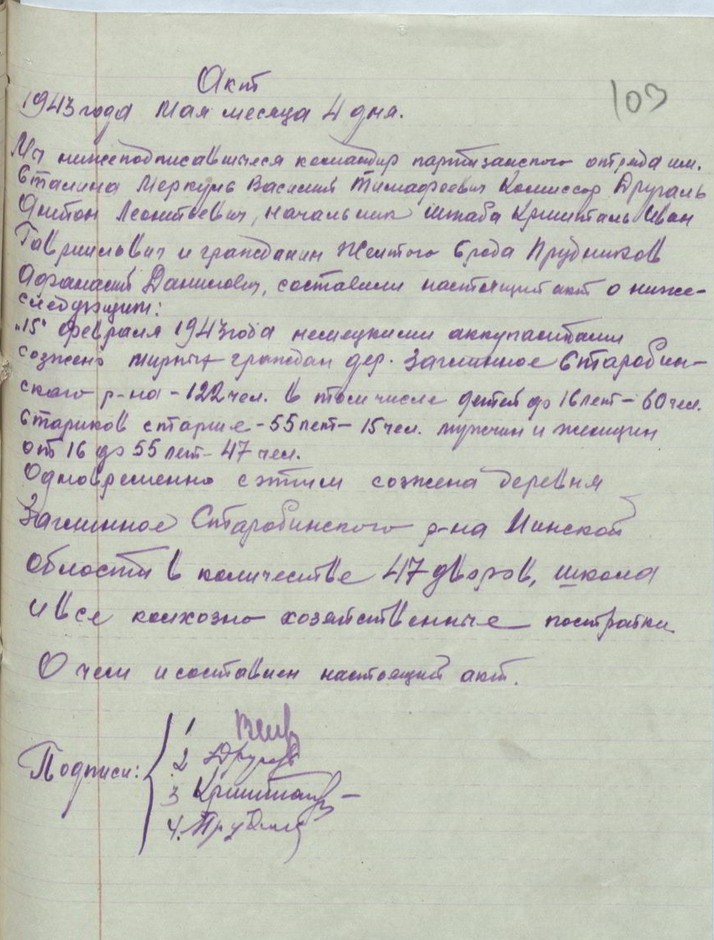 Акт
103
1943 года Мая месяца 4 дня.
Мы нижеподписавшиеся командир партизанского отряда им.
Сталина Меркуль Василий Тимафеевич Комиссор Другаль
Антон Леонтьевич, начальник штаба Кришталь Иван
Гаврилович и гражданин Желтого брода Прудников
Афанасий Данилович, составили настоящий акт о ниже-
следующим:
"15" февраля 1943 года немецкими аккупантами
созжено мирных граждан дер. Заглинное Старобин-
ского р-на - 122 чел. в том числе детей до 16 лет - 60 чел.
Стариков старше - 55 лет - 15 чел. мужчин и женщин
от 16 до 55 лет - 47 чел.
Одновременно с этим созжена деревня
Заглинное Старобинского р-на Минской
области в количестве 47 дворов, школа
и все колхозно хозяйственные постратки
О чем и составлен настоящий акт.
Подписи:
1
2 Другаль
3 Криштал
4. Прудник